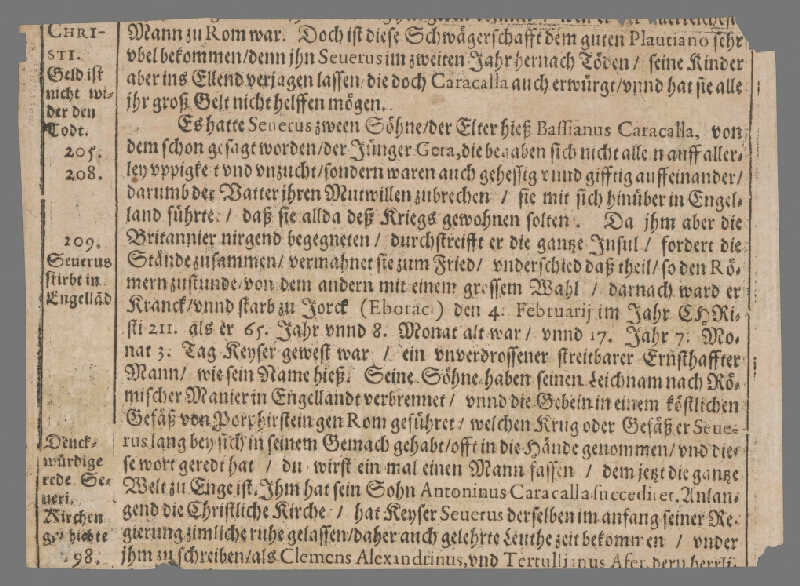 CHRI-
STI.
Geld ist
nicht wi-
der den
Todt.
205.
208.
209.
Seuerus
stirbt in
Engellād
Denck-
würdige
rede Se-
ueri.
Kirchen
98.
Mann zu Rom war. Doch ist diese Schwägerschafft dem guten Plautiano sehr
vbel bekommen/denn jhn Seuerus im zweiten Jahr hernach Töden/ seine Kinder
aber ins Ellend verjagen lassen/die doch Caracalla auch erwürgt/vnnd hat sie alle
jhr groß Gelt nicht helffen mögen.
Es hatte Seuerus zween Söhne/der Elter hieß Bassianus Caracalla, von
dem schon gesagt worden/der Jünger Geta, die begaben sich nicht allein auff aller-
ley vppigkeit vnd vnzucht/sondern waren auch gehessig vnnd gifftig auffeinander/
darumb der Vatter jhren Mutwillen zubrechen / sie mit sich hinüber in Engel-
land führte / daß sie allda deß Kriegs gewohnen solten. Da jhm aber die
Britannier nirgend begegneten/ durchstreifft er die gantze Insul/ fordert die
Stände zusammen/ vermahnet sie zum Fried/ vnderschied daß theil/so den Rö-
mern zustunde/von dem andern mit einem grossem Wahl / darnach ward er
Kranck/vnnd starb zu Jorck (Eborac.) den 4. Februarij im Jahr CHRi-
sti 211. als er 65. Jahr vnnd 8. Monat alt war/ vnnd 17. Jahr 7. Mo-
nat 3. Tag Keyser gewest war / ein vnverdrossener streitbarer Ernsthaffter
Mann/ wie sein Name hieß. Seine Söhne haben seinen Leichnam nach Rö-
mischer Manier in Engellandt verbrennet / vnnd die Gebein in einem köstlichen
Gefäß von Porphirstein gen Rom geführet/ welchen Krug oder Gefäß er Seue-
rus lang bey sich in seinem Gemach gehabt/offt in die Hände genommen/ vnd die-
se wort geredt hat / du wirst ein mal einen Mann fassen / dem jetzt die gantze
Welt zu Enge ist. Ihm hat sein Sohn Antoninus Caracalla succediret. Anlan-
gend die Christliche Kirche / hat Keyser Seuerus derselben im anfang seiner Re-
gierung zimliche ruhe gelassen/daher auch gelehrte Leuthe zeit bekommen / vnder
jhm zu schreiben/als Clemens Alexandrinus, vnd Tertullianus Afer, deren herrli-